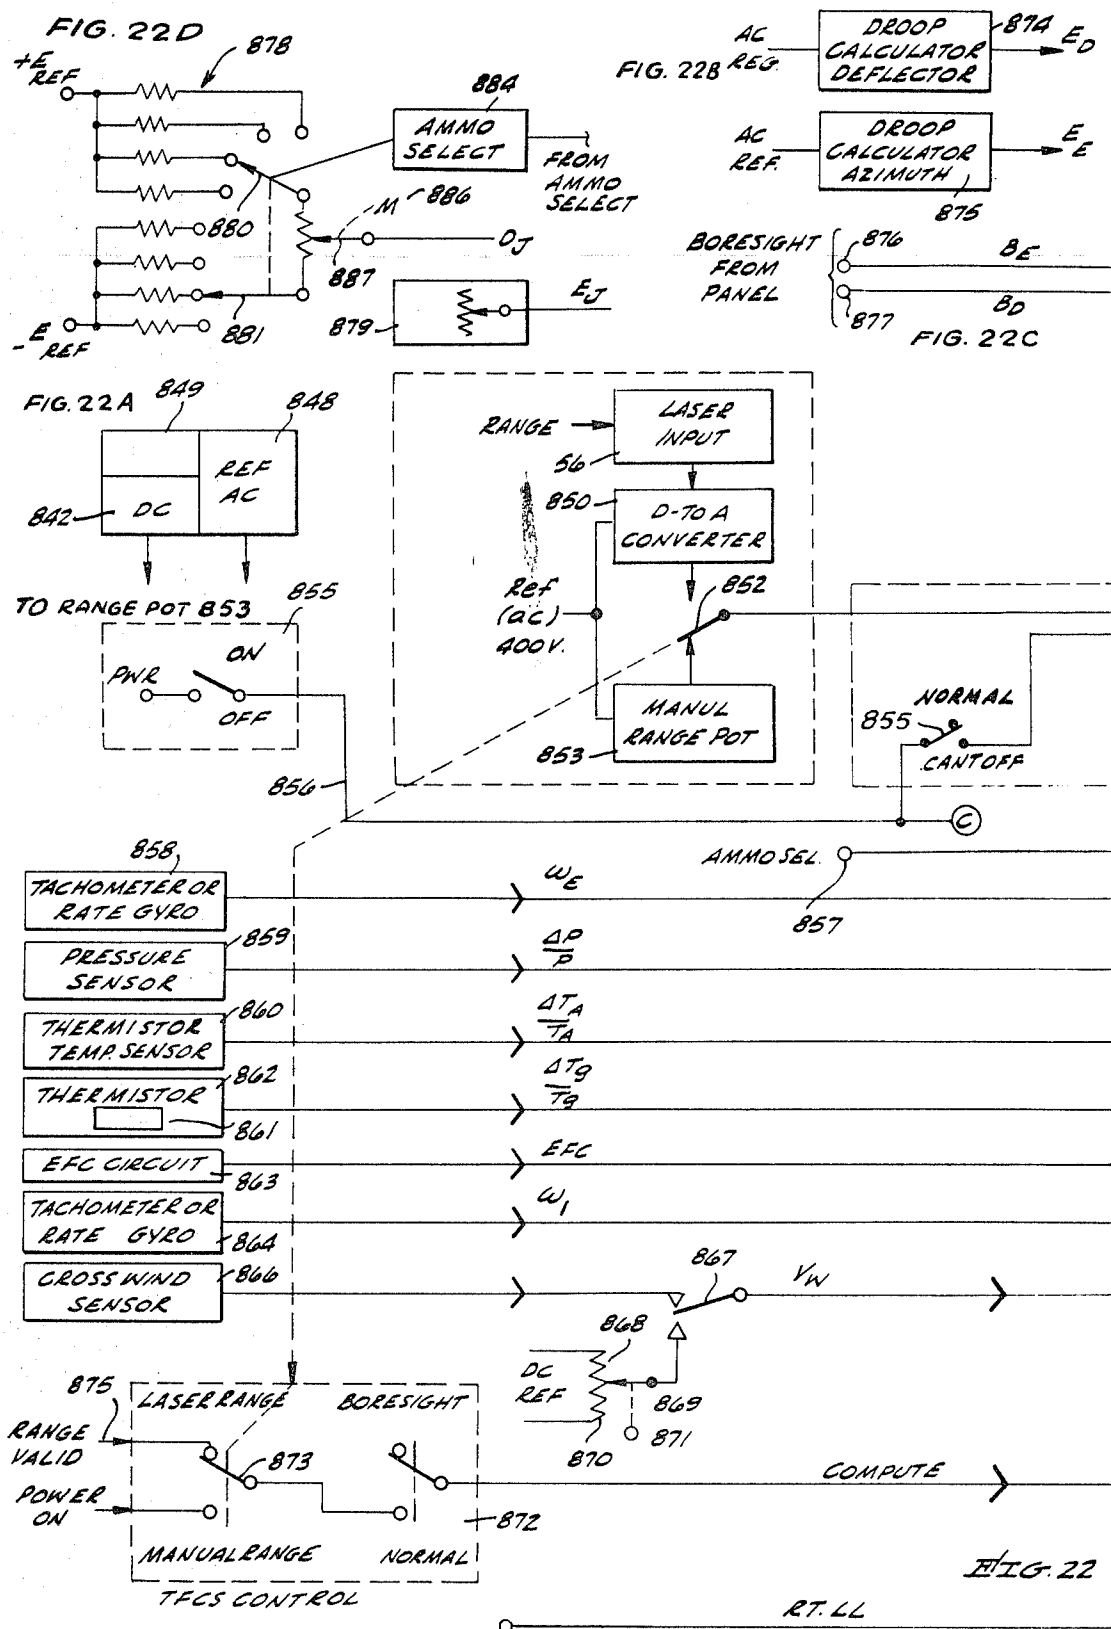 FIG. 22D
878
+E
REF
884
AMMO
SELECT
FROM
AMMO
SELECT
880
M
886
887
DJ
EJ
879
881
-E
REF
FIG. 22B
AC
REG.
DROOP
CALCULATOR
DEFLECTOR
874
ED
AC
REF.
DROOP
CALCULATOR
AZIMUTH
875
EE
BORESIGHT
FROM
PANEL
876
BE
877
BD
FIG. 22C
FIG. 22A
849
848
REF
AC
842
DC
TO RANGE POT 853
855
PWR
ON
OFF
856
RANGE
LASER
INPUT
56
850
D-TO A
CONVERTER
Ref
(ac)
400V.
852
MANUL
RANGE POT
853
NORMAL
855
CANT OFF
C
AMMO SEL.
857
858
TACHOMETER OR
RATE GYRO
ωE
859
PRESSURE
SENSOR
ΔP
P
860
THERMISTOR
TEMP. SENSOR
ΔTA
TA
862
THERMISTOR
861
ΔTg
Tg
EFC CIRCUIT
863
EFC
TACHOMETER OR
RATE GYRO
864
ω1
CROSS WIND
SENSOR
866
867
VW
868
DC
REF
869
870
871
875
LASER RANGE
BORESIGHT
RANGE
VALID
873
POWER
ON
COMPUTE
872
MANUAL RANGE
NORMAL
TFCS CONTROL
FIG. 22
RT. LL